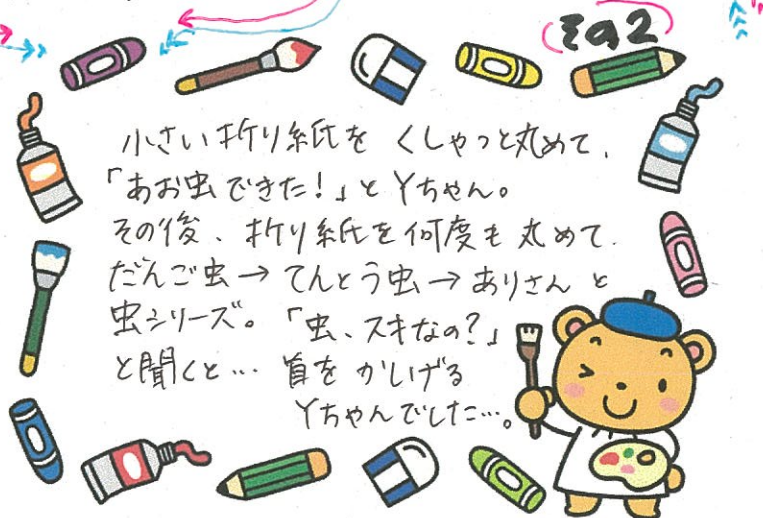 その2
小さい折り紙を くしゃっと丸めて、
「あお虫できた!」とYちゃん。
その後、折り紙を何度も丸めて
だんご虫→てんとう虫→ありさん と
虫シリーズ。「虫、スキなの?」
と聞くと… 首を かしげる
Yちゃんでした…。